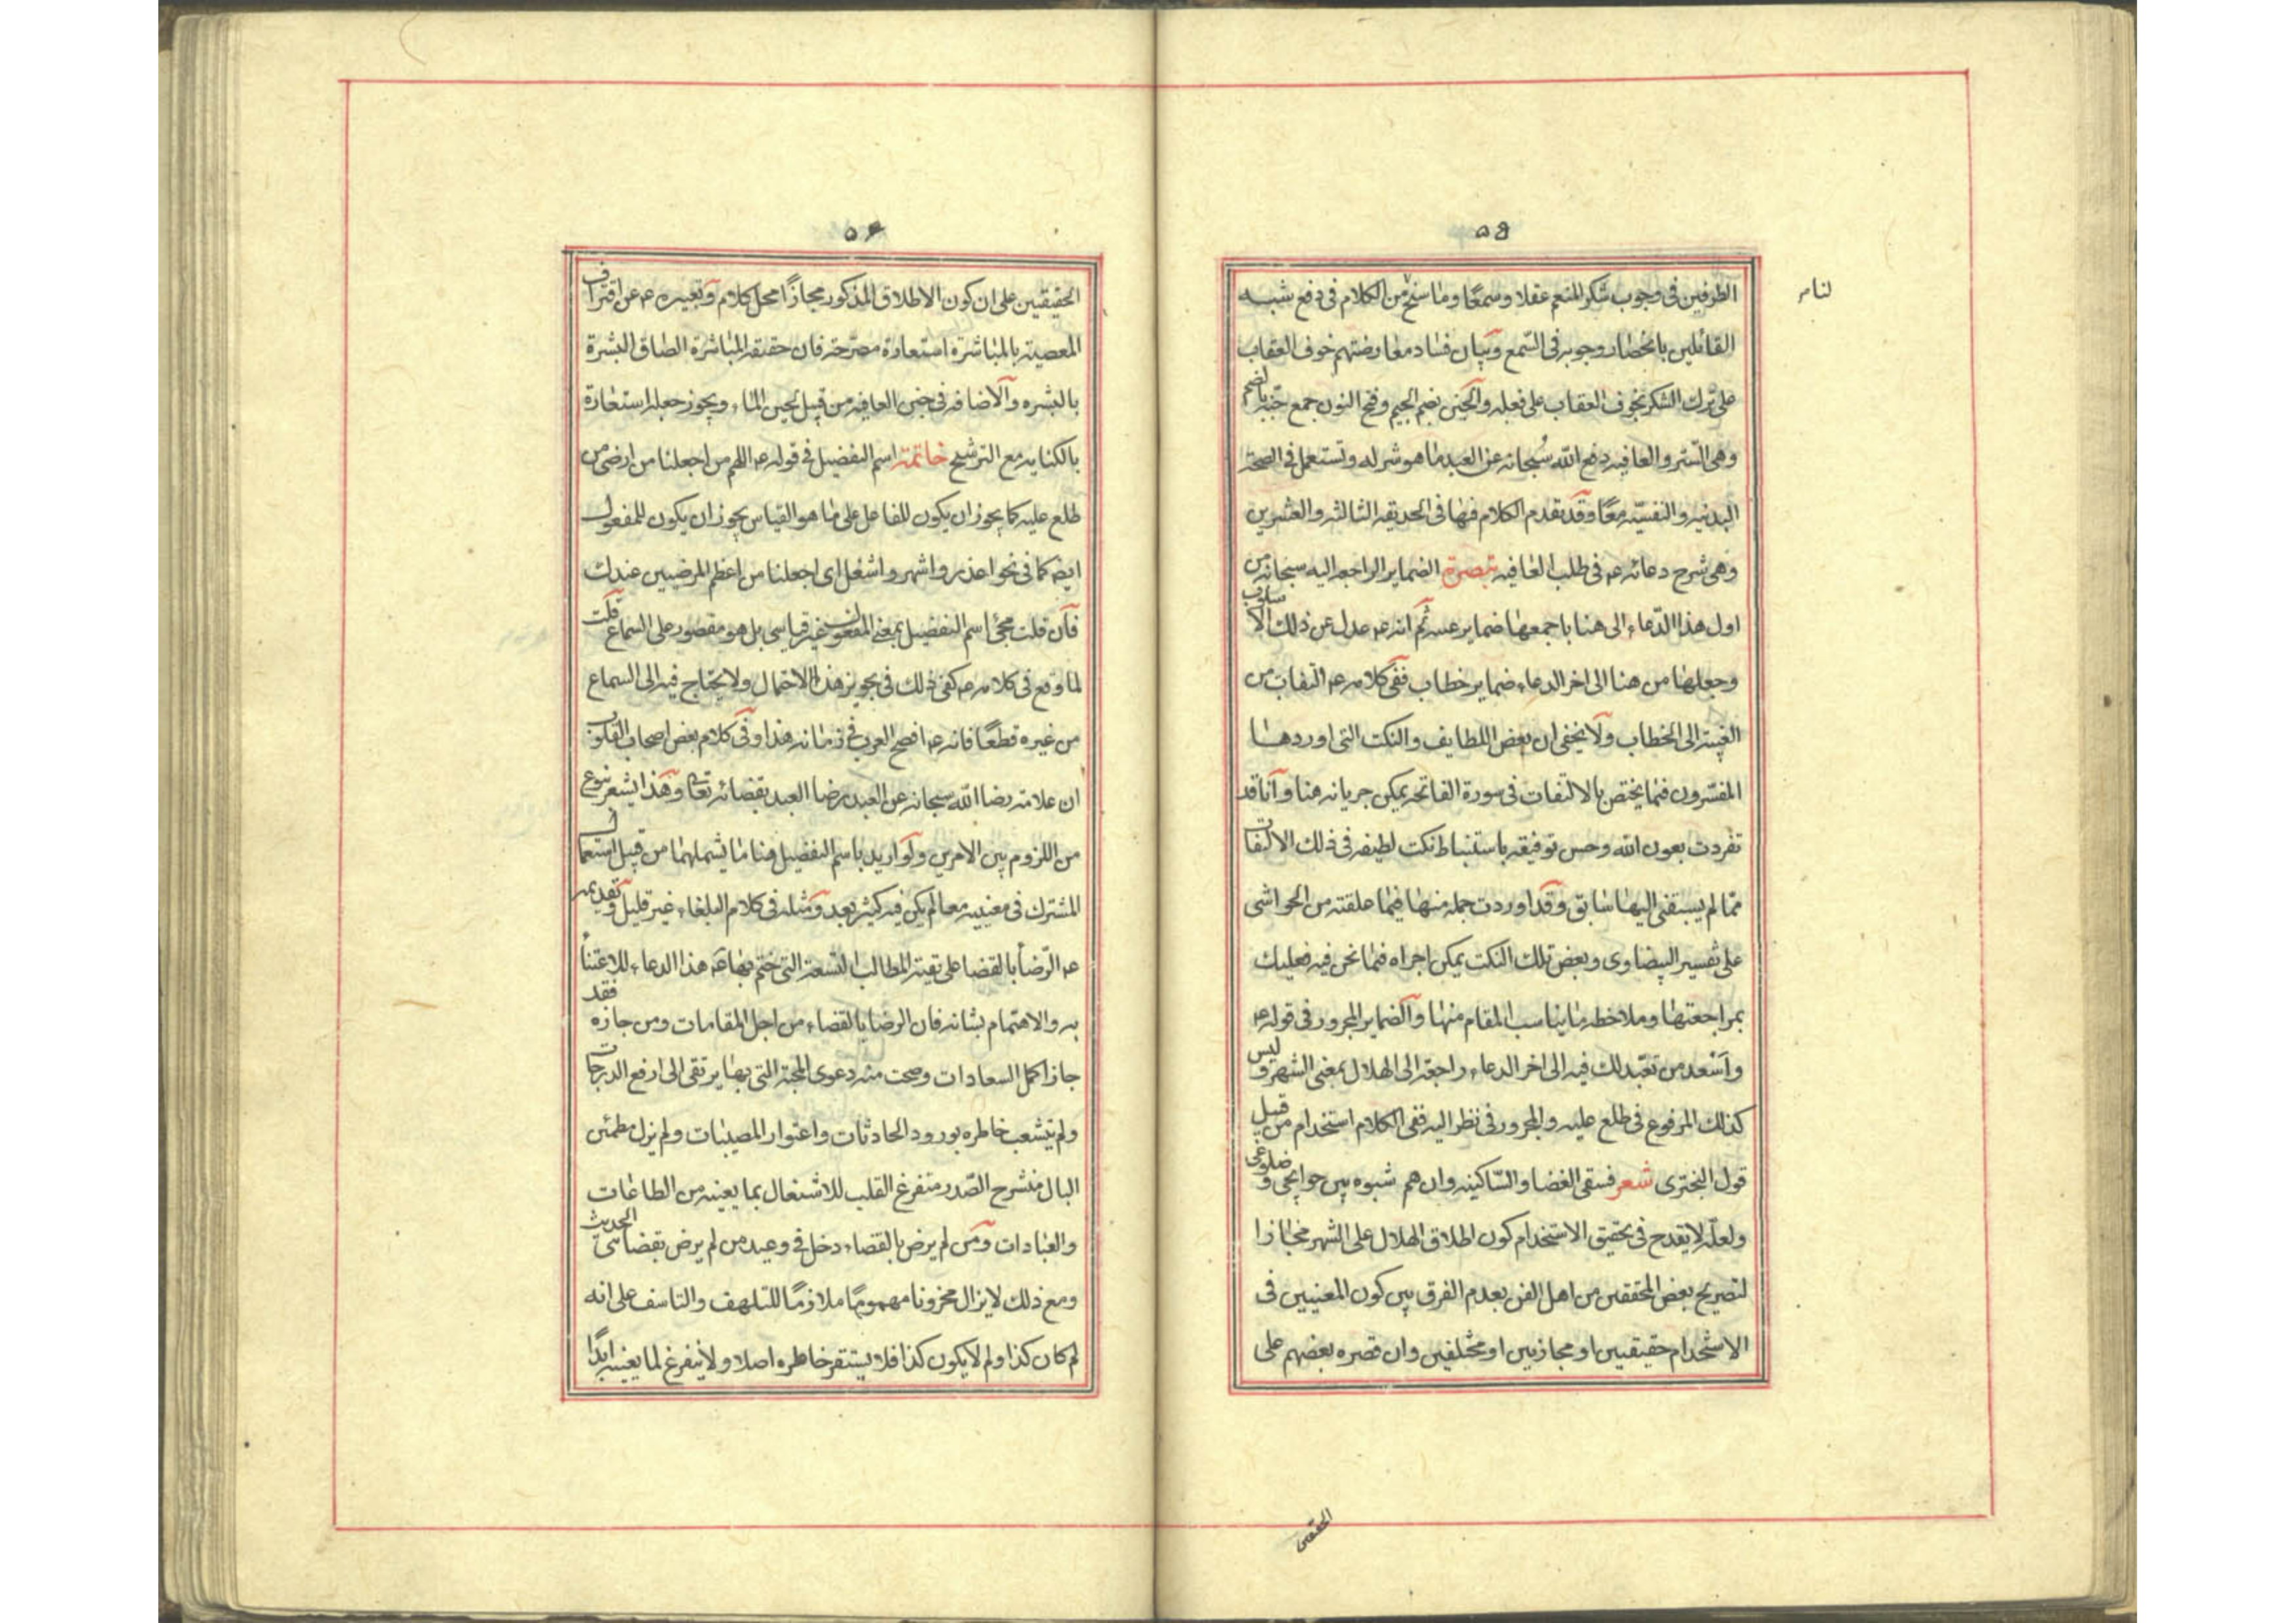 ٥٥
لنا صر
الطرفين فى وجوب شكر المنعم عقلا وسمعًا وما سنح من الكلام فى دفع شبه
القائلين بانحصار وجوبه فى السّمع وبيان فساد معارضتهم خوف العقاب
على ترك الشكر بخوف العقاب على فعله والجنن بضم الجيم وفتح النون جمع جنّه بالضم
وهى الستر والعافيه دفع الله سُبحانه عن العبد ما هو شر له وتستعمل فى الصحة
البدنيه والنفسيّه معًا وقد تقدم الكلام فيها فى الحديقه الثالثه والعشرين
وهى شرح دعائه عه فى طلب العافيه تبصرة الضماير الراجعه اليه سبحانه من
اول هذا الدّعاء الى هنا باجمعها ضماير غيبه ثم انه عه عدل عن ذلك الاسلوب
وجعلها من هنا الى اخر الدعاء ضماير خطاب ففى كلامه عه التفات من
الغيبة الى الخطاب ولا يخفى ان بعض اللطايف والنكت التى اوردها
المفسّرون فيما يختص بالالتفات فى سورة الفاتحه يمكن جريانه هنا وانا قد
تفردت بعون الله وحسن توفيقه باستنباط نكت لطيفه فى ذلك الالتفات
ممّا لم يسبقنى اليها سابق وقد اوردت جمله منها فيما علقته من الحواشى
على تفسير البيضاوى وبعض تلك النكت يمكن اجراه فيما نحن فيه فعليك
بمراجعتها وملاحظه ما يناسب المقام منها والضماير المجرور فى قوله عه
واَسْعد من تعبّد لك فيه الى اخر الدعاء راجعة الى الهلال بمعنى الشهر وليس
كذلك المرفوع فى طلع عليه والمجرور فى نظر اليه ففى الكلام استخدام من قبيل
قول البخترى شعر فسقى الغضا والسّاكنيه وان هم شبوه بين جوانحى وضلوعى
ولعلّه لا يقدح فى تحقيق الاستخدام كون اطلاق الهلال على الشهر مجازا
لتصريح بعض المحققين من اهل الفن بعدم الفرق بين كون المعنيين فى
الاستخدام حقيقيين او مجازيين او مختلفين وان قصره بعضهم على
الحقيقين
٥۶
الحقيقيين على ان كون الاطلاق المذكور مجازًا محل كلام وتعبيره عه عن اقتراف
المعصية بالمباشرة استعارة مصرّحة فان حقيقه المباشرة الصاق البشرة
بالبشره والاضافه فى جنن العافيه من قبيل لجين الماء ويجوز جعله استعارة
بالكنايه مع الترشيح خاتمة اسم التفضيل فى قوله عه اللهم من اجعلنا من ارضى من
طلع عليه كما يجوز ان يكون للفاعل على ما هو القياس يجوز ان يكون للمفعول
ايضا كما فى نحو اعذر واشهر واشغل اى اجعلنا من اعظم المرضيين عندك
فان قلت مجئ اسم التفضيل بمعنى المفعول غير قياسى بل هو مقصور على السماع قلت
لما وقع فى كلامه عه كفى ذلك فى تجويز هذا الاحتمال ولا يحتاج فيه الى السماع
من غيره قطعًا فانه عه افصح العرب فى زمانه هذا وفى كلام بعض اصحاب القلوب
ان علامة رضا الله سبحانه عن العبد رضا العبد بقضائه تعالى وهذا يشعر بنوع
من اللزوم بين الامرين ولو اريد باسم التفضيل هنا ما يشملهما من قبيل استعمال
المشترك فى معنييه معا لم يكن فيه كثير بعد ومثله فى كلام البلغاء غير قليل وتقديمه
عه الرّضاء بالقضا على بقية المطالب التسعة التى ختم بها عه هذا الدعاء للاعتناء
به والاهتمام بشانه فان الرضا بالقضاء من اجل المقامات ومن جازه فقد
جاز اكمل السعادات وصحت منه دعوى المحبة التى بها يرتقى الى ارفع الدرجات
ولم يتشعب خاطره بورود الحادثات واعتوار المصيبات ولم يزل مطمئن
البال منشرح الصّدر متفرغ القلب للاشتغال بما يعنيه من الطاعات
والعبادات ومن لم يرض بالقضاء دخل فى وعيد من لم يرض بقضائى الحديث
ومع ذلك لا يزال محزونا مهمومًا ملازمًا للتلهف والتاسف على انه
لم كان كذا ولم لا يكون كذا فلا يستقر خاطره اصلا ولا يتفرغ لما يعنيه ابدًا